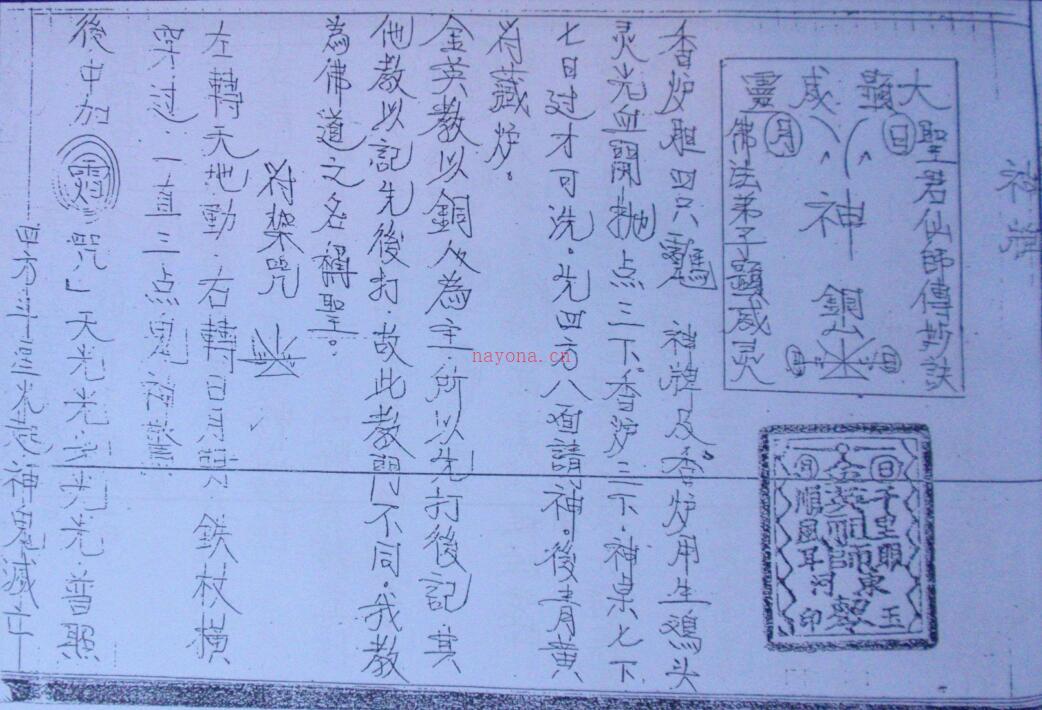 神
大顯威靈
日
月
聖君仙師傳勅訣
神
銅
佛法弟子顯威灵
月
日
日
月
千里眼
金英祖師
順風耳
東
玉
印
勅
香炉胆四只 神牌及香炉用生鸡头
灵光血開 点三下香炉三下．神桌七下
七日过才可洗。先四方八面請神。後青黄
符藏炉。
金英教以銅人為主．所以先打後記．其
他教以記先後打．故此教門不同．我教
為佛道之名稱聖。
符架咒
左轉天地動．右轉日月 ．鉄杖橫
穿过．一直三点鬼
後中加 咒」天光光 光光．普照
神鬼滅亡
nayona.cn